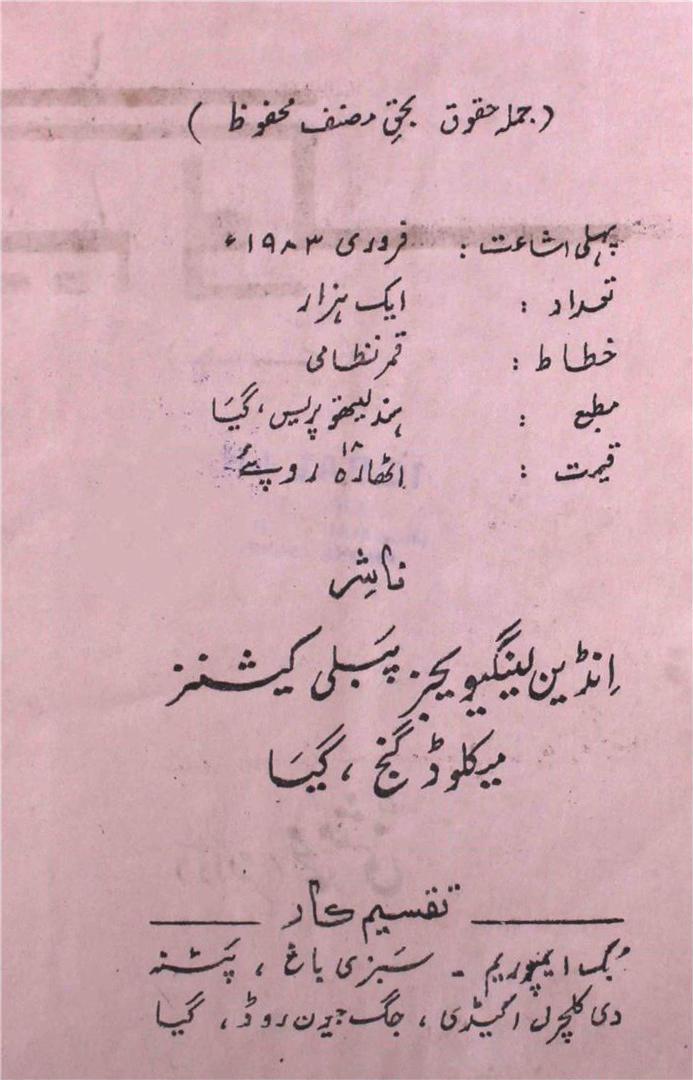 (جملہ حقوق بحقِ مصنف محفوظ)
پہلی اشاعت : فروری ۱۹۸۳ء
تعداد : ایک ہزار
خطاط : قمر نظامی
مطبع : ہند لیتھو پریس، گیَا
قیمت : اٹھارہ ۱۸ روپئے
ناشِر
اِنڈین لینگیویجز پَبلی کیشنز
میکلوڈ گنج ، گیَا
تقسیم کار
بُک ایمپوریم ۔ سَبزی باغ ، پَٹنہ
دی کلچرل اکیڈی ، جگ جیون روڈ ، گیا